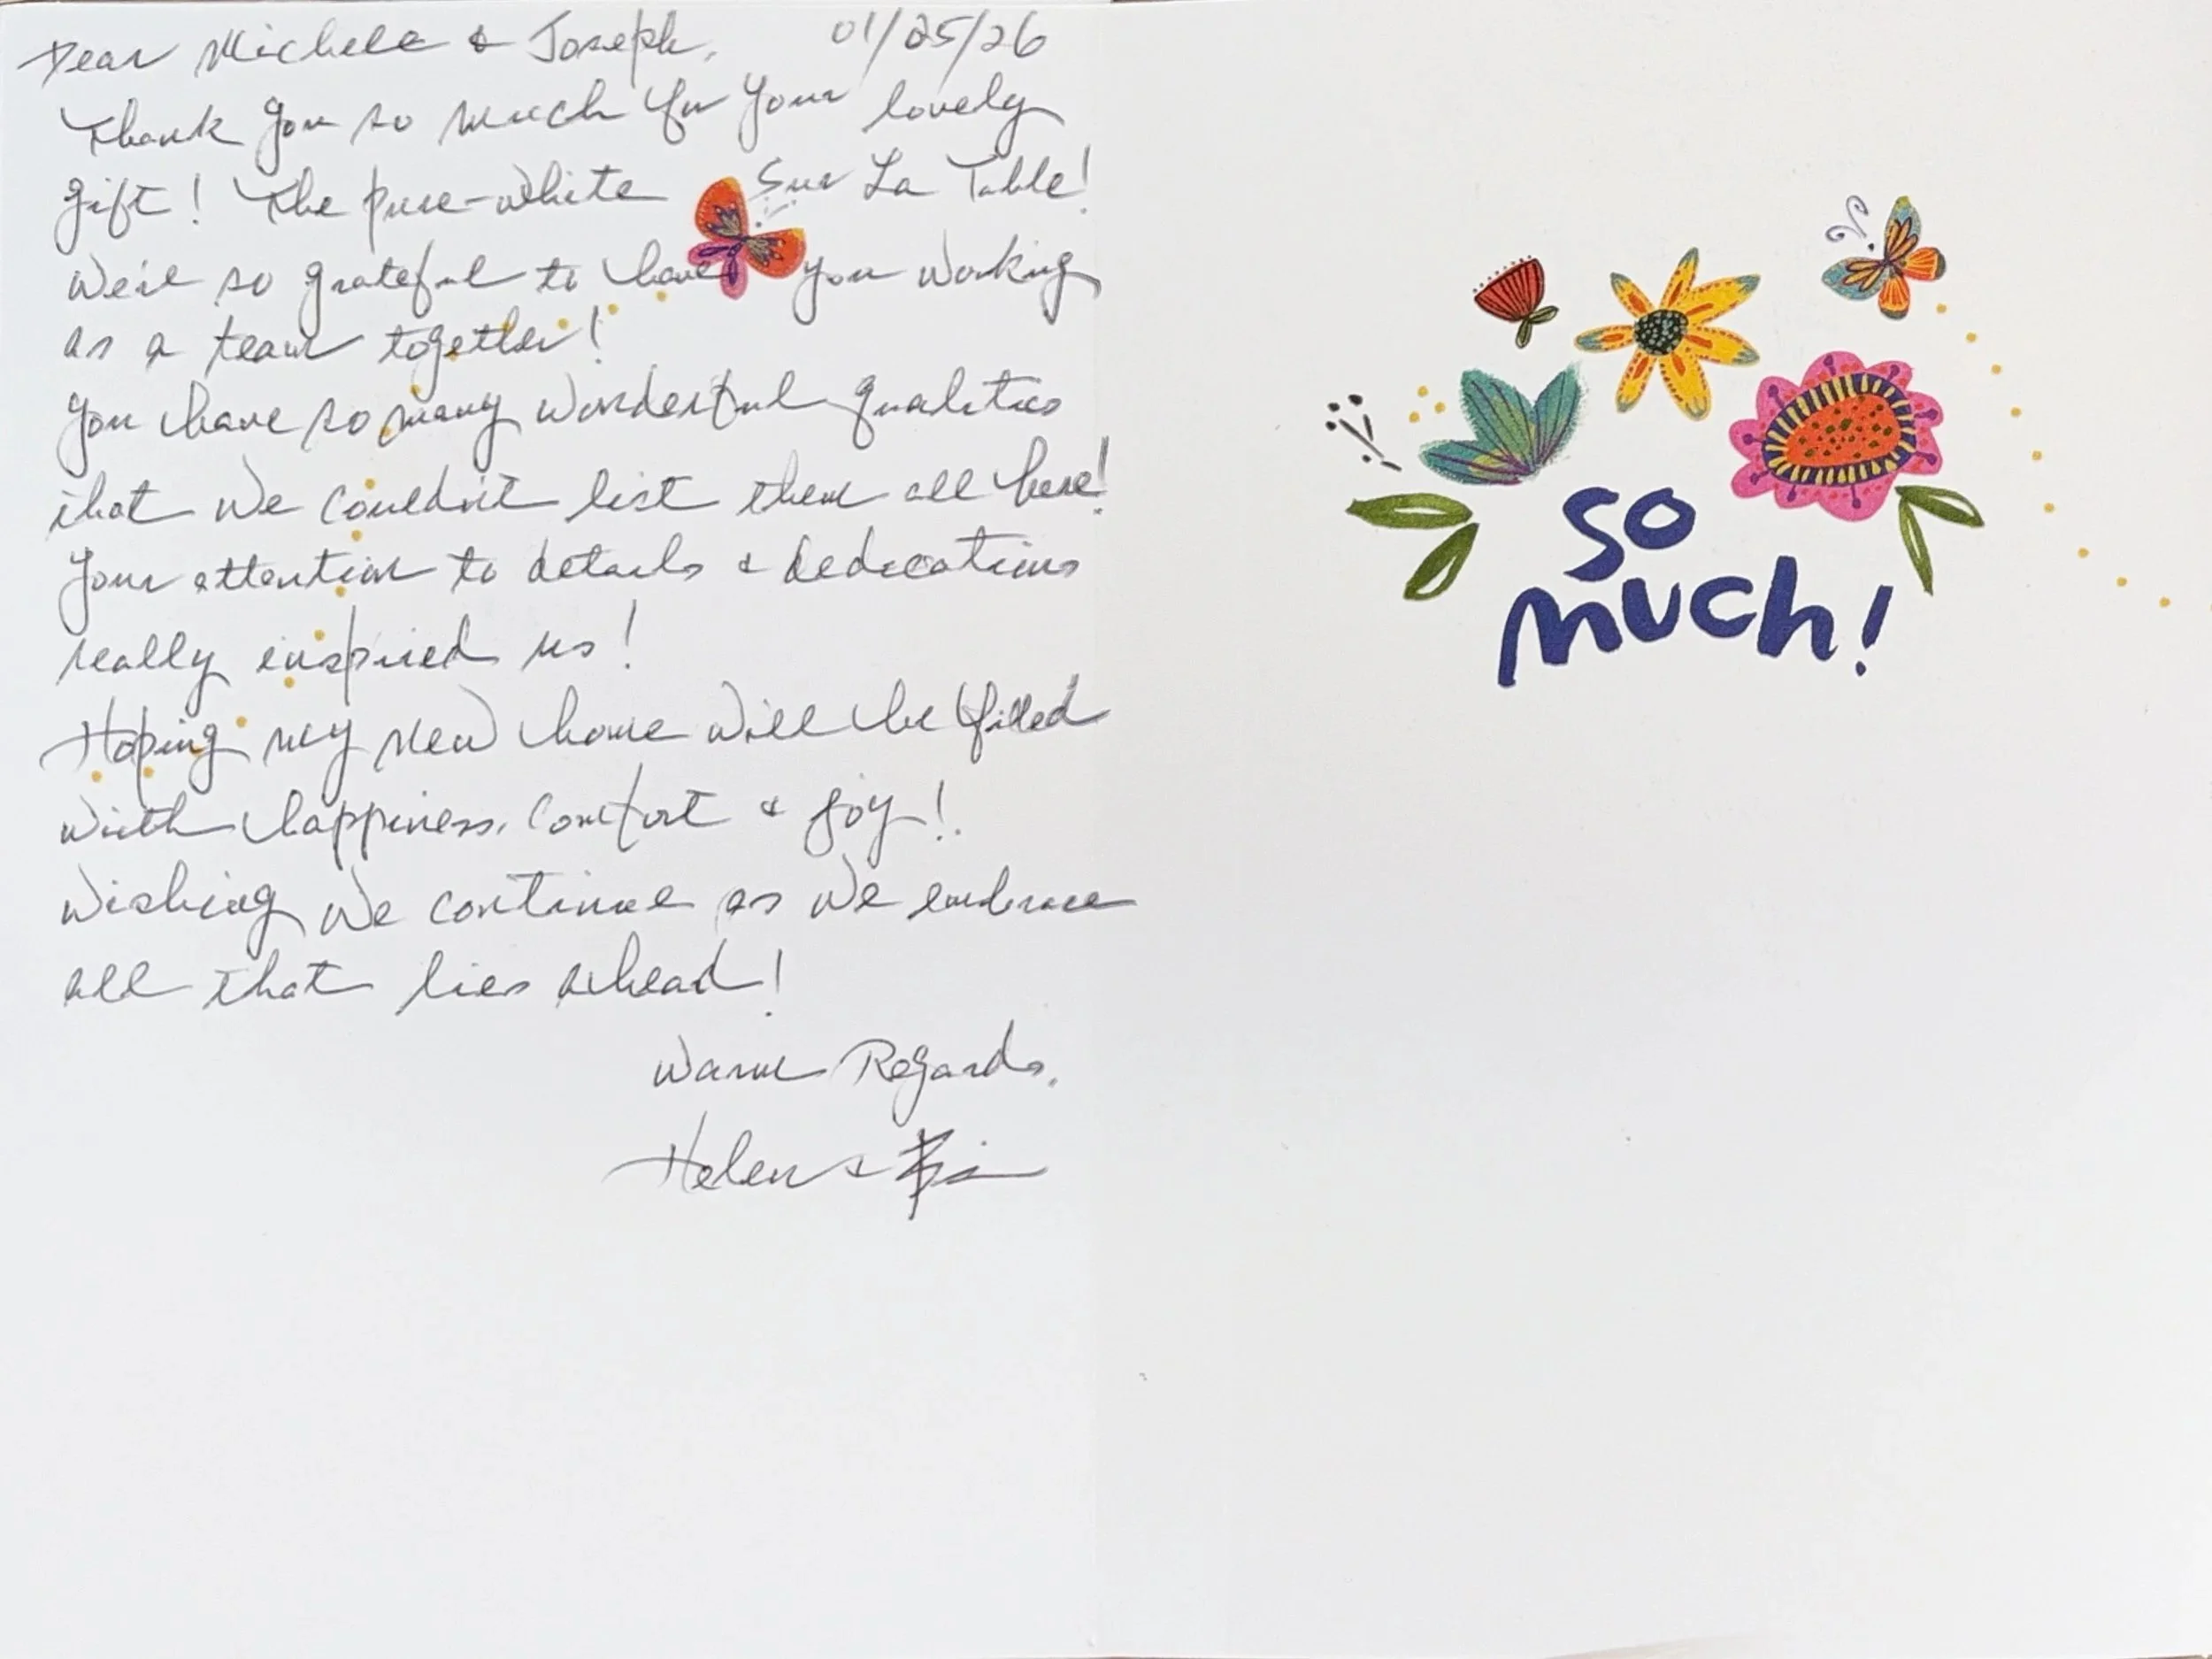 Dear Michele & Joseph, 01/25/26
Thank you so much for your lovely
gift! The pure-white Sur La Table!
We're so grateful to have you working
as a team together!
You have so many wonderful qualities
that we couldn't list them all here!
Your attention to details & dedications
really inspired us!
Hoping my new home will be filled
with happiness, comfort & joy!
Wishing we continue as we embrace
all that lies ahead!
Warm Regards,
Helen &
so
much!